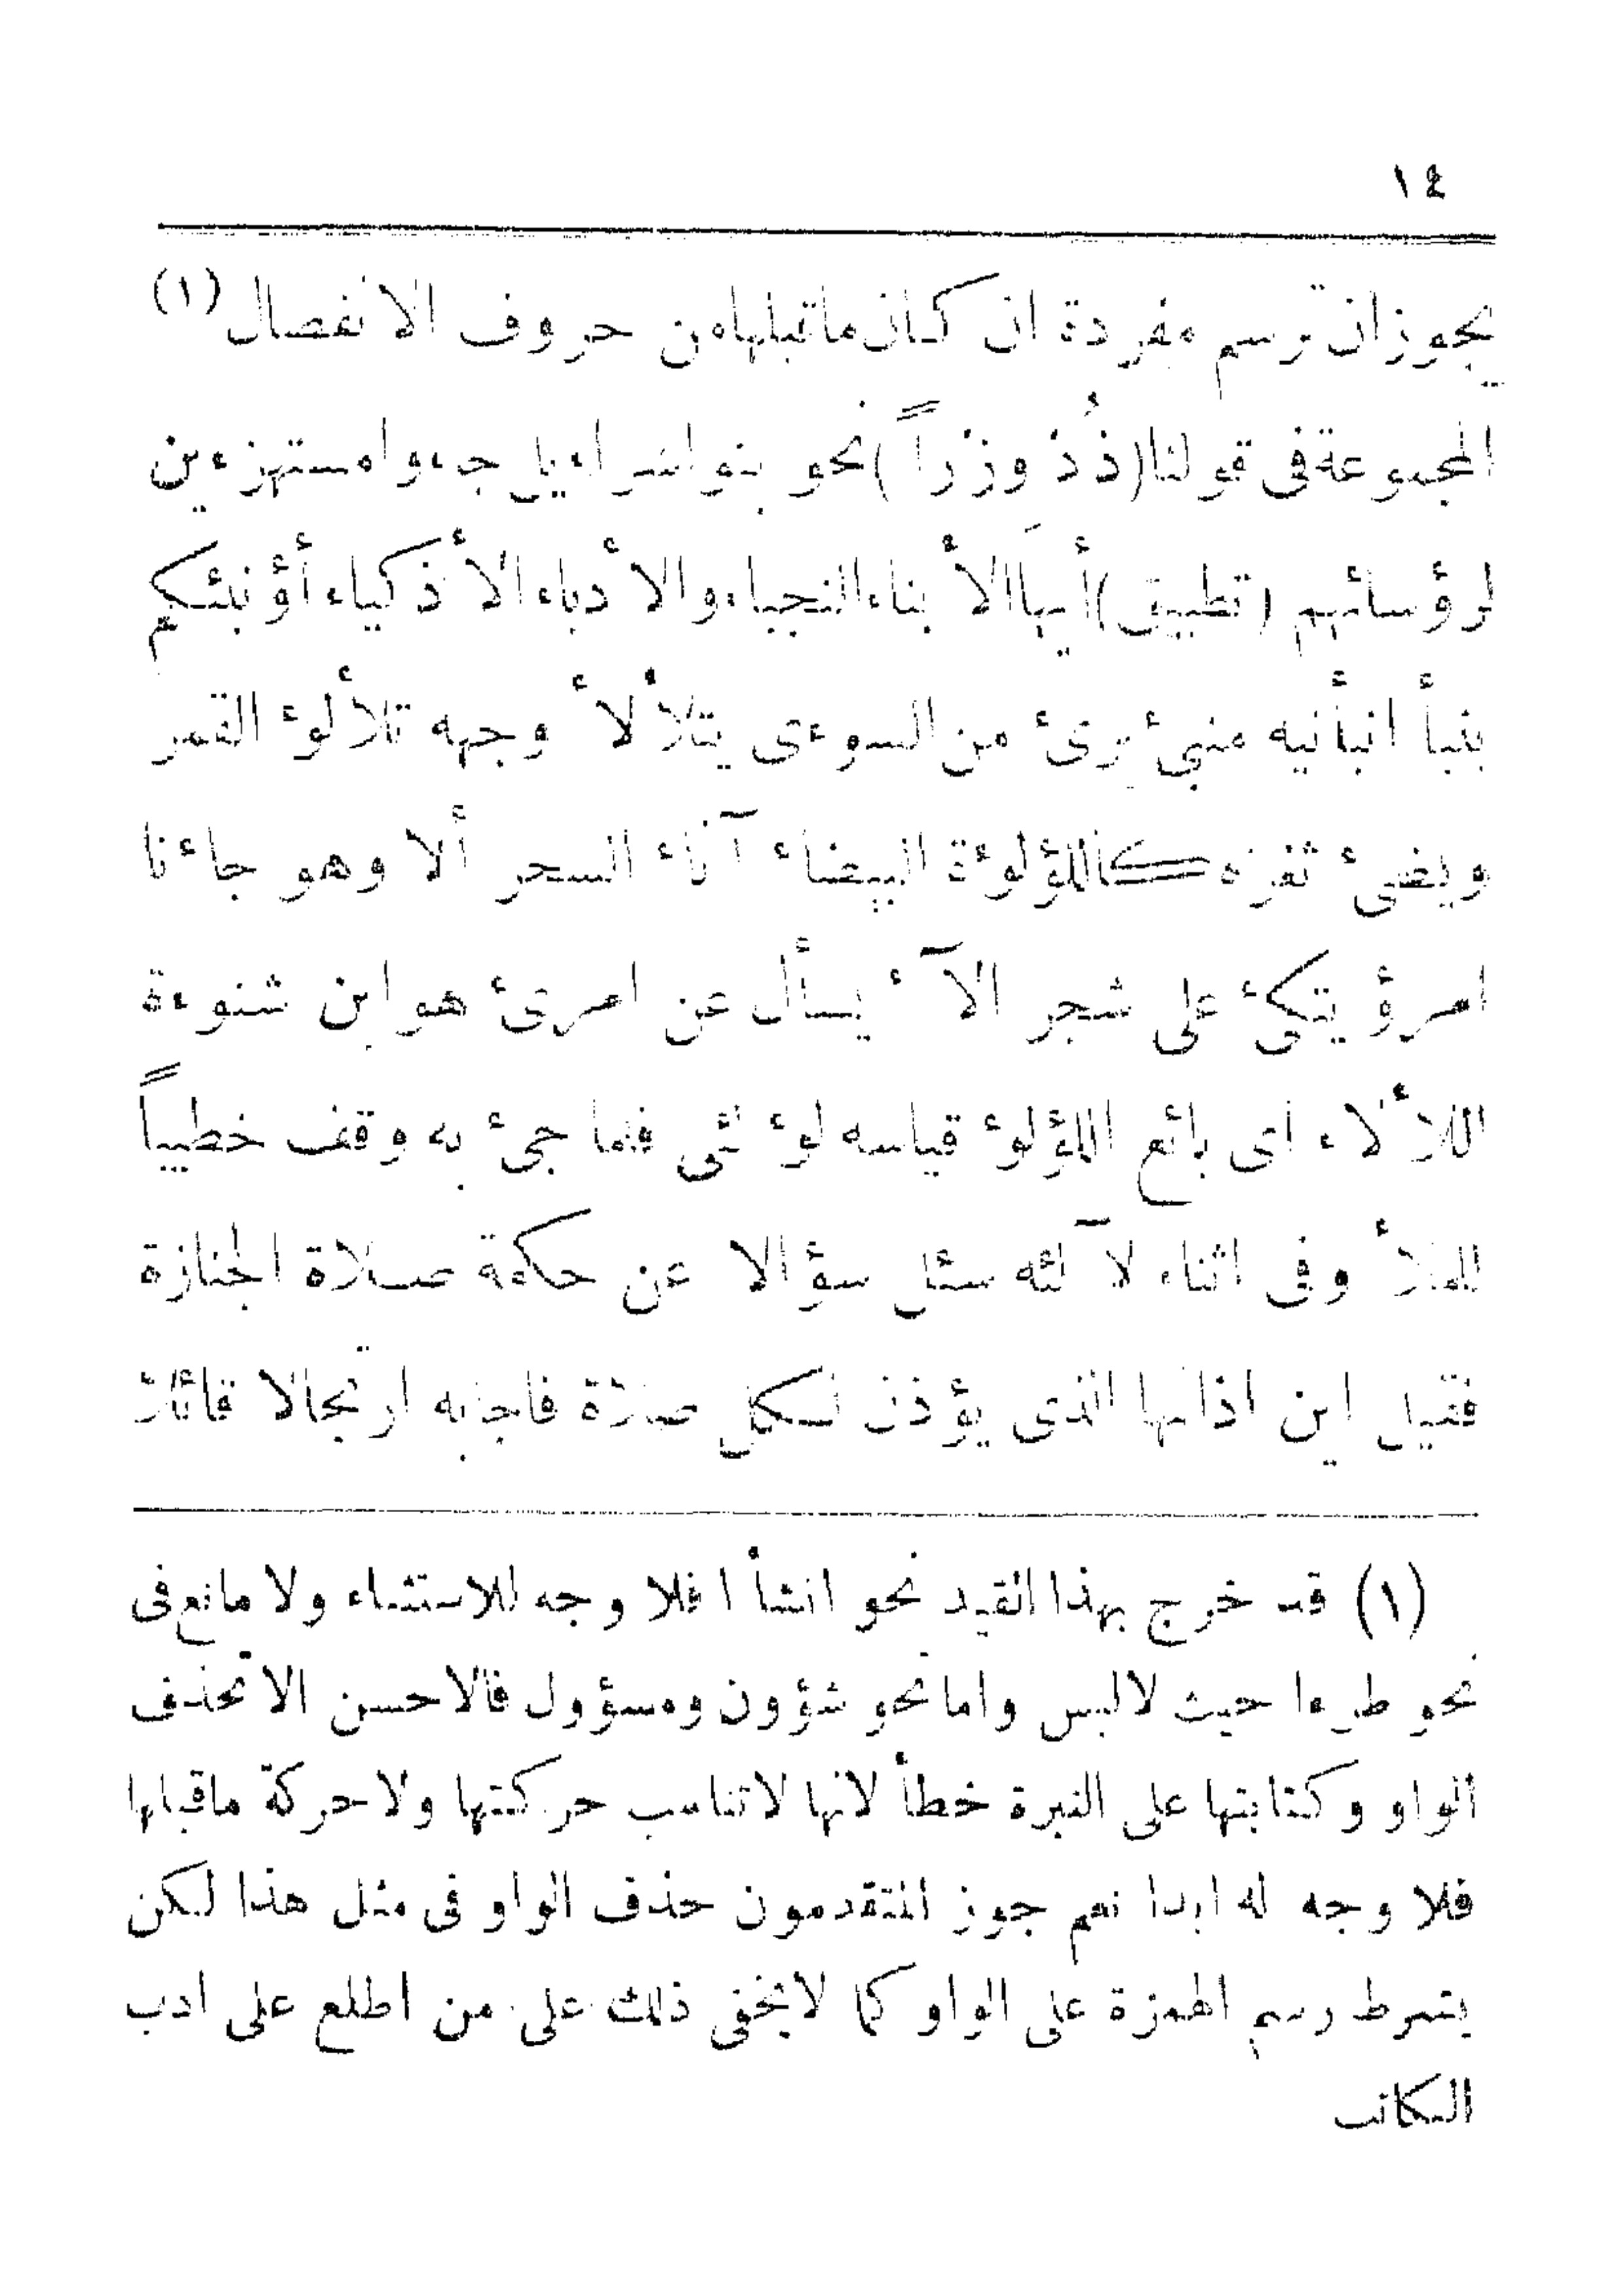 ١٤
يجوز ان ترسم مفردة ان كان ماقبلها من حروف الانفصال (١)
المجموعة فى قولنا (ذُد وزراً) نحو بنو اسراءيل جاءوا مستهزءين
لرؤسائهم (تطبيق) أيهَا الأبناء النجباء والأدباء الأذكياء أؤنبئكم
بنبأ انبأنيه منبئ برىء من السوءى يتلألأ وجهه تلألوء القمر
ويضىء ثغره كاللؤلوءة البيضاء آناء السحر ألا وهو جاءنا
امرؤ يتكئ على شجر الآء يسأل عن امرئ هو ابن شنوءة
اللألاء اى بائع اللؤلوء قياسه لوءلئى فلما جىء به وقف خطيباً
للملأ وفى اثناء لآلئه سئل سؤالا عن حكمة صلاة الجنازة
فقيل اين اذانها الذى يؤذن لكل صلاة فاجابه ارتجالا قائلا
(١) قد خرج بهذا القيد نحو انشأا فلا وجه للاستثناء ولا مانع فى
نحو طرءا حيث لا لبس واما نحو شؤون ومسؤول فالاحسن الا تحذف
الواو وكتابتها على النبرة خطأ لانها لا تناسب حركتها ولا حركة ماقبلها
فلا وجه له ابدا نعم جوز المتقدمون حذف الواو فى مثل هذا لكن
بشرط رسم الهمزة على الواو كما لا يخفى ذلك على من اطلع على ادب
الكاتب